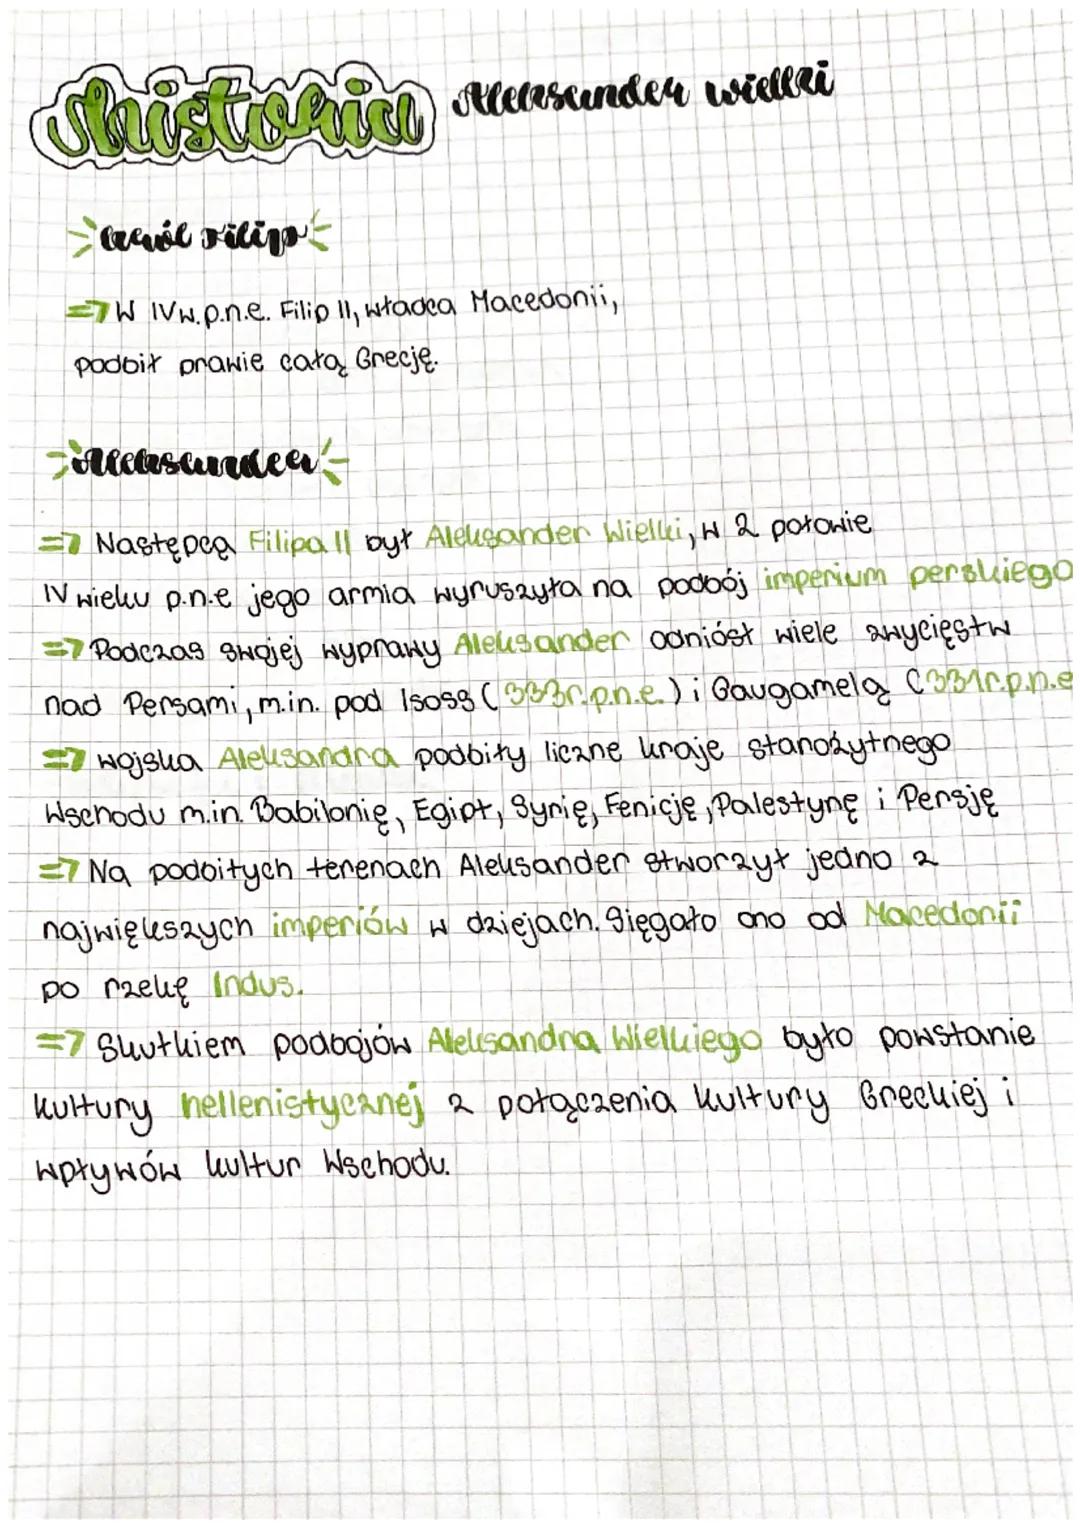 historia Aleksander wielki
król Filip
=> W IV w. p.n.e. Filip II, władca Macedonii,
podbił prawie całą Grecję.
Aleksander
=> Następcą Filipa II był Aleksander Wielki, w 2 połowie
IV wieku p.n.e jego armia wyruszyła na podbój imperium perskiego
=> Podczas swojej wyprawy Aleksander odniósł wiele zwycięstw
nad Persami, m.in. pod Isoss (333r.p.n.e.) i Gaugamelą (331r.p.n.e
=> wojska Aleksandra podbiły liczne kraje starożytnego
Wschodu m.in. Babilonię, Egipt, Syrię, Fenicję, Palestynę i Persję
=> Na podbitych terenach Aleksander stworzył jedno z
największych imperiów w dziejach. Sięgało ono od Macedonii
po rzekę Indus.
=> Skutkiem podbojów Aleksandra Wielkiego było powstanie
kultury hellenistycznej z połączenia kultury Greckiej i
wpływów kultur Wschodu.